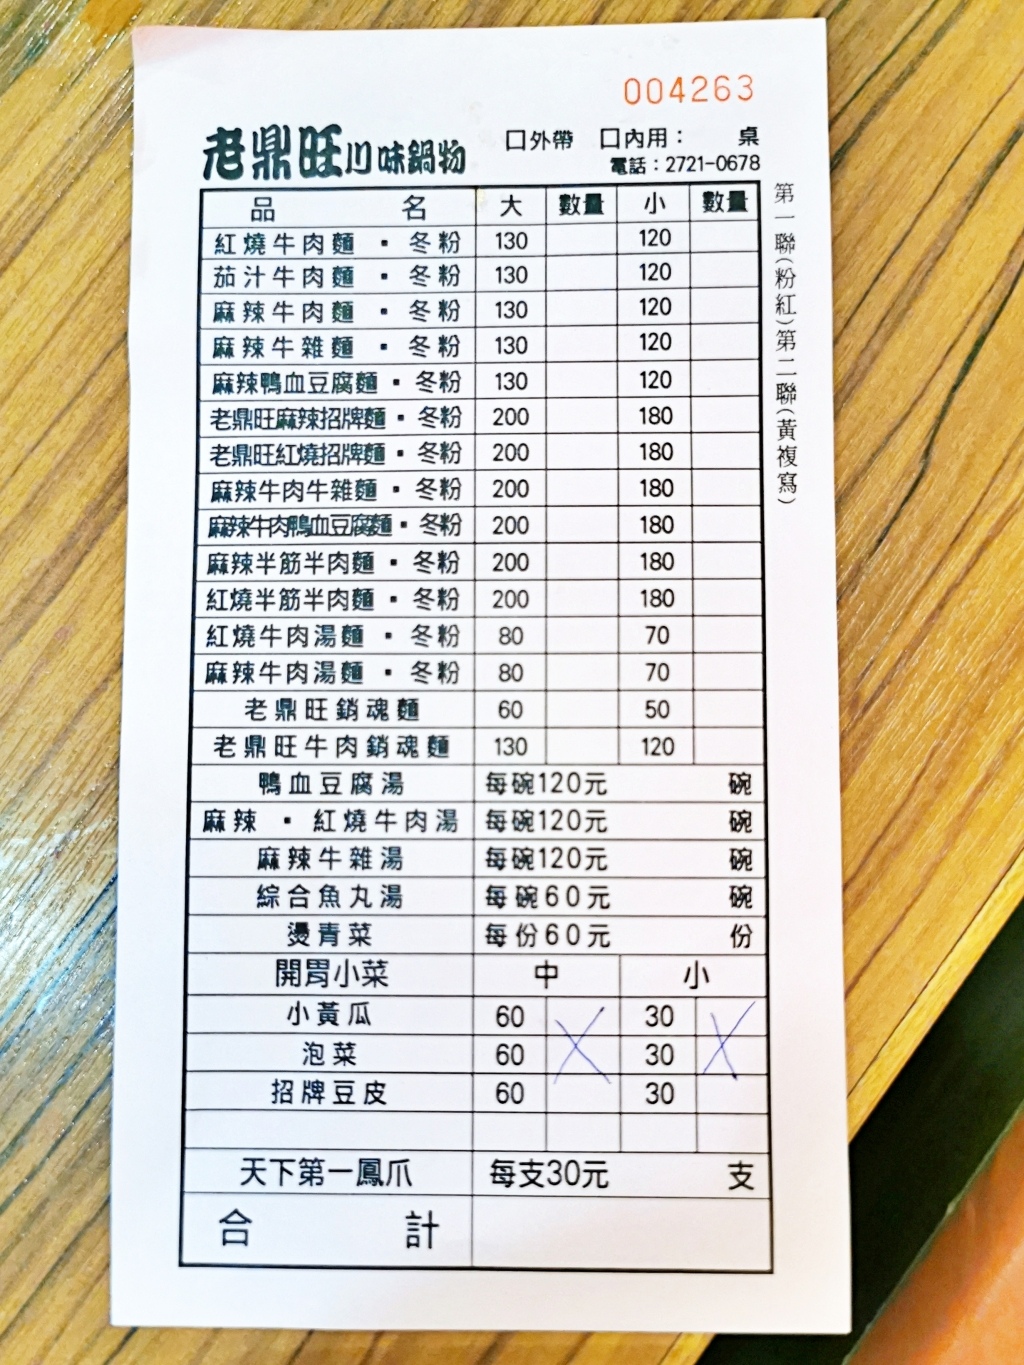 004263
老鼎旺川味鍋物
口外帶 口內用： 桌
電話：2721-0678
品 名 大 數量 小 數量
紅燒牛肉麵 ▪ 冬粉 130 120
茄汁牛肉麵 ▪ 冬粉 130 120
麻辣牛肉麵 ▪ 冬粉 130 120
麻辣牛雜麵 ▪ 冬粉 130 120
麻辣鴨血豆腐麵 ▪ 冬粉 130 120
老鼎旺麻辣招牌麵 ▪ 冬粉 200 180
老鼎旺紅燒招牌麵 ▪ 冬粉 200 180
麻辣牛肉牛雜麵 ▪ 冬粉 200 180
麻辣牛肉鴨血豆腐麵 ▪ 冬粉 200 180
麻辣半筋半肉麵 ▪ 冬粉 200 180
紅燒半筋半肉麵 ▪ 冬粉 200 180
紅燒牛肉湯麵 ▪ 冬粉 80 70
麻辣牛肉湯麵 ▪ 冬粉 80 70
老鼎旺銷魂麵 60 50
老鼎旺牛肉銷魂麵 130 120
鴨血豆腐湯 每碗120元 碗
麻辣 ▪ 紅燒牛肉湯 每碗120元 碗
麻辣牛雜湯 每碗120元 碗
綜合魚丸湯 每碗60元 碗
燙青菜 每份60元 份
開胃小菜 中 小
小黃瓜 60 30
泡菜 60 30
招牌豆皮 60 30
天下第一鳳爪 每支30元 支
合 計
第一聯(粉紅)第二聯(黃複寫)